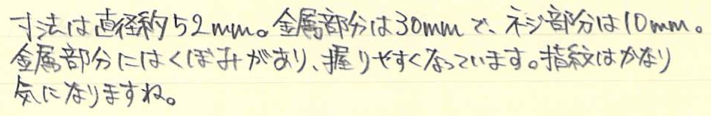 寸法は直径約52mm。金属部分は30mmで、ネジ部分は10mm。
金属部分にはくぼみがあり、握りやすくなっています。指紋はかなり
気になりますね。